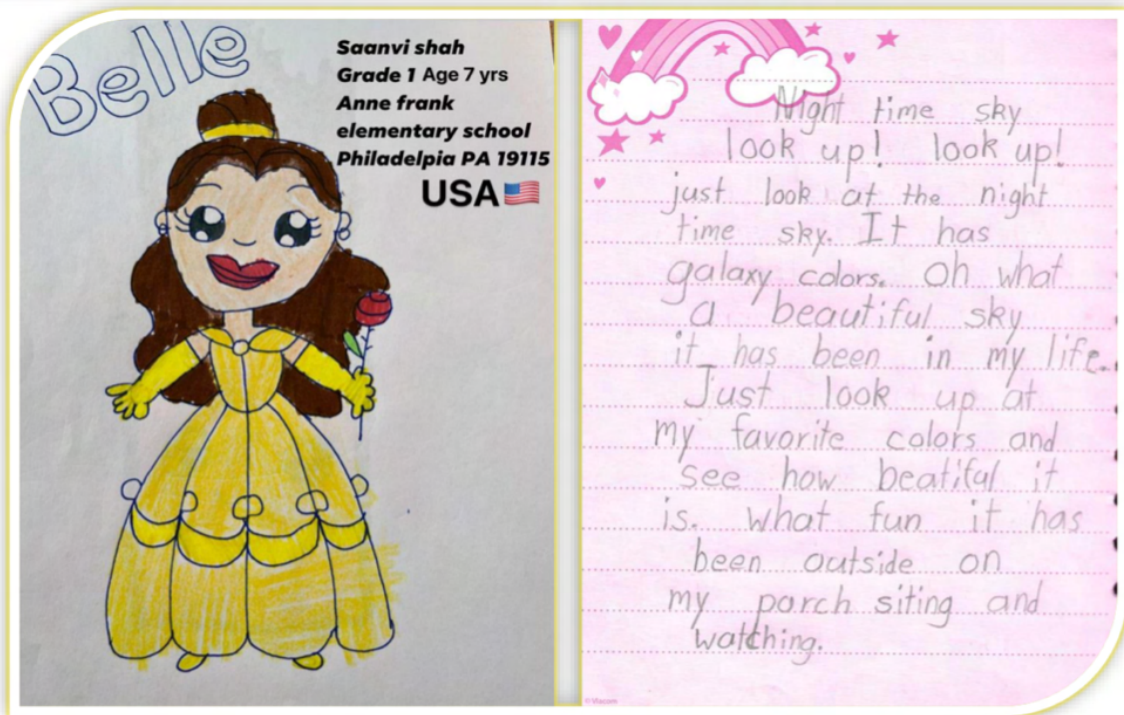 Belle
Saanvi shah
Grade 1 Age 7 yrs
Anne frank
elementary school
Philadelpia PA 19115
USA
Night time sky
look up! look up!
just look at the night
time sky. It has
galaxy colors. Oh what
a beautiful sky
it has been in my life.
Just look up at
my favorite colors and
see how beatiful it
is. What fun it has
been outside on
my porch siting and
watching.
© Viacom